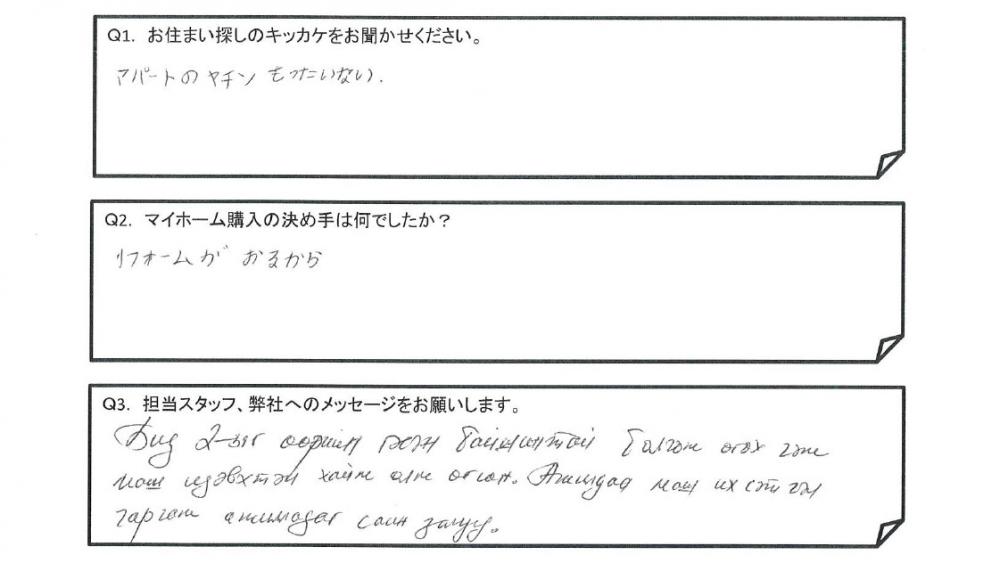 Q1. お住まい探しのキッカケをお聞かせください。
アパートのヤチンもったいない.
Q2. マイホーム購入の決め手は何でしたか？
リフォームが おるから
Q3. 担当スタッフ、弊社へのメッセージをお願いします。
Бид 2-ыг өөрийн гэсэн байшинтай болгож өгөх гэж
маш идэвхтэй хайж олж өгсөн. Ажилдаа маш их сэтгэл
гаргаж ажилладаг сайн залуу.